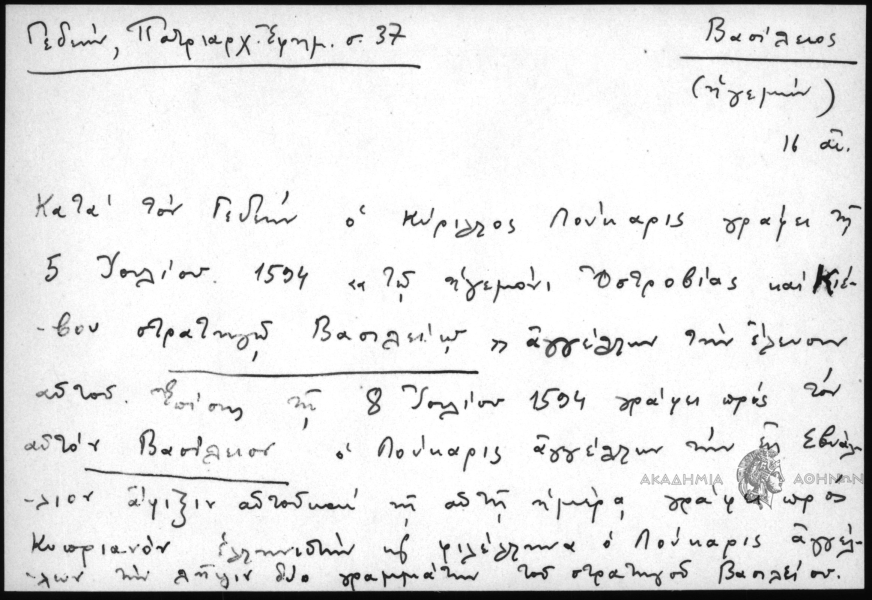 Γεδεών, Πατριαρχ. Ἐφημ. σ. 37
Βασίλειος
(ἡγεμών)
16 αἰ.
Κατὰ τὸν Γεδεὼν ὁ Κύριλλος Λούκαρις γράφει τῇ
5 Ἰουλίου 1594 "τῷ ἡγεμόνι Ὀστροβίας καὶ Κιέ-
-βου στρατηγῷ Βασιλείῳ" ἀγγέλλων τὴν ἔλευσιν
αὐτοῦ. Ἐπίσης τῇ 8 Ἰουλίου 1594 γράφει πρὸς τὸν
αὐτὸν Βασίλειον ὁ Λούκαρις ἀγγέλλων τὴν
-λιον ἄφιξιν αὐτοῦ καὶ τῇ αὐτῇ ἡμέρᾳ γράφει πρὸς
Κυπριανὸν φιλέλληνα ὁ Λούκαρις ἀγγέλ-
-λων τὴν λῆψιν δύο γραμμάτων τοῦ στρατηγοῦ Βασιλείου.
ΑΚΑΔΗΜΙΑ ΑΘΗΝΩΝ